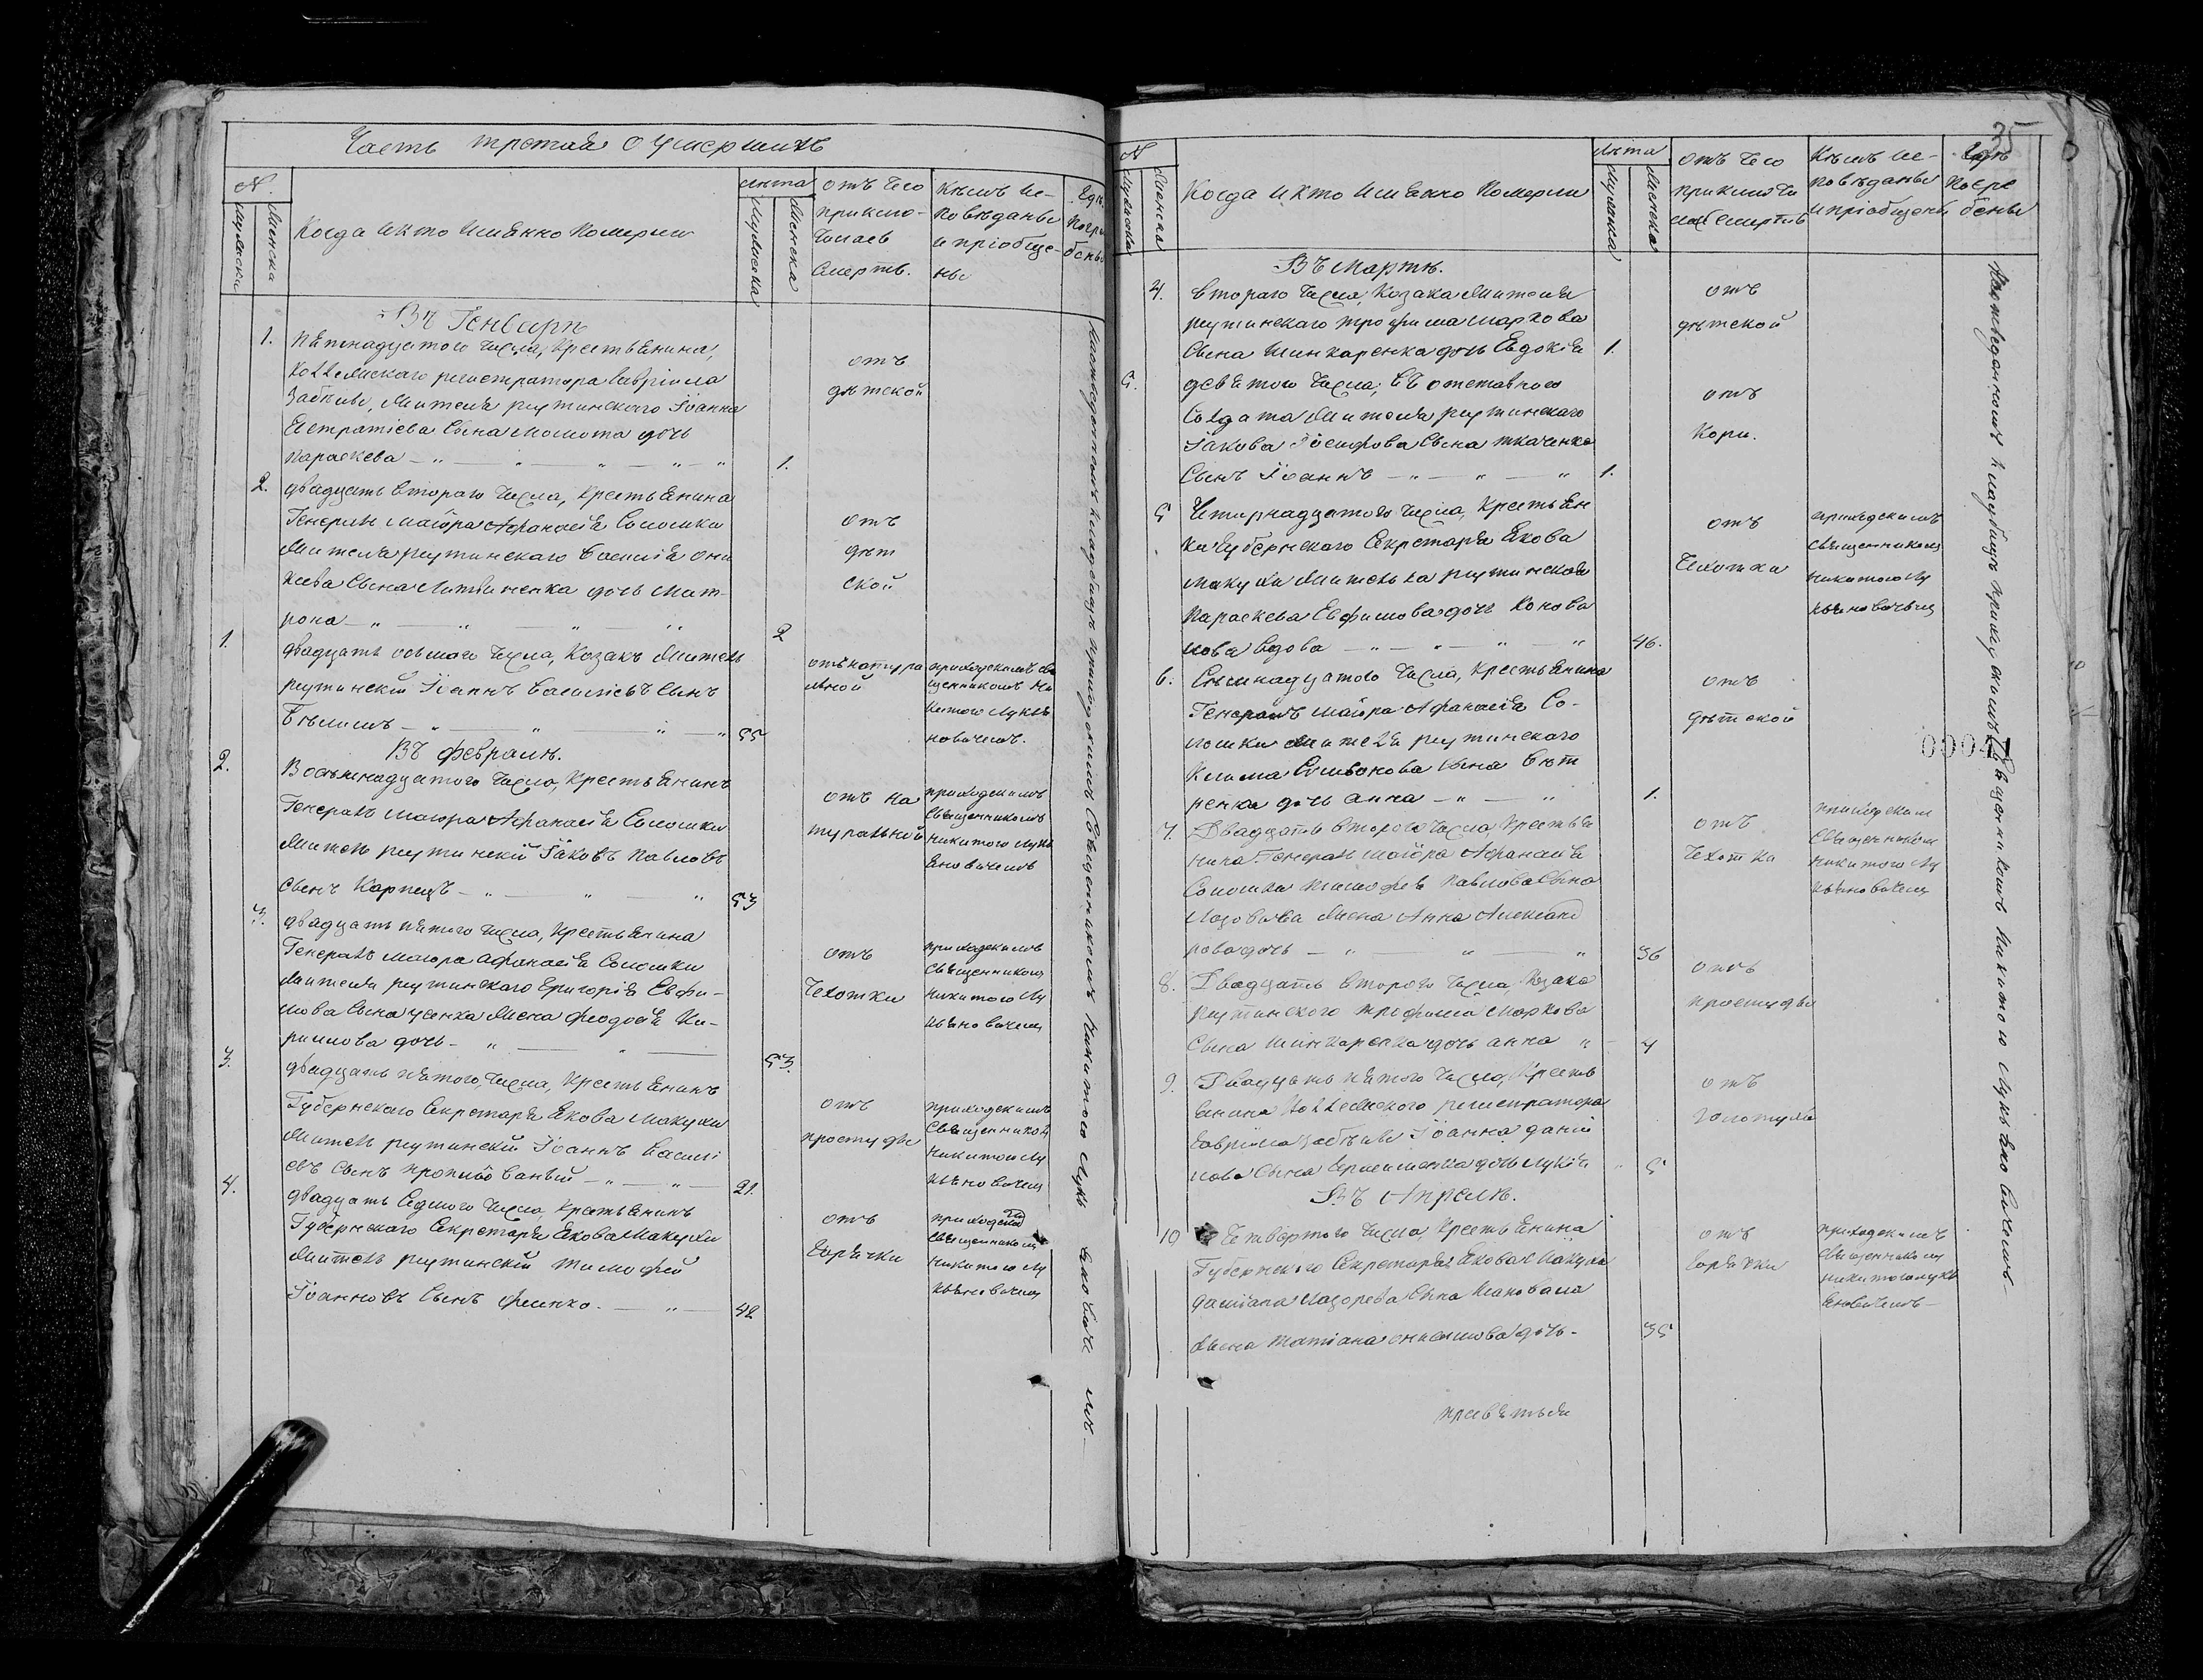 Часть третая о умершихъ
N.
мужеска
женска
Когда и кто имянно померли
лѣта
мужеска
женска
отъ чего
приклю-
чилась
смерть.
кѣмъ ис-
повѣданы
и пріобще-
ны
Въ Генварѣ
1. пятнадцатого числа, крестьянина,
коллежского регистратора Гавріила
Забѣлы, жителя рутинского Іоанна
Евстратіева сына Момота дочь
Параскева — 1.
отъ
дѣтской
2. двадцать второго числа, крестьянина
Генералъ маіора Афанасія Соломки
жителя рутинского Василія Они
кіева сына Литвиненка дочь Мат-
рона — 2
отъ
дѣт
ской
1. двадцать осмого числа, козакъ житель
рутинскій Іоаннъ Василіевъ сынъ
55
отъ натура
льной
приходскимъ свя
щенникомъ Ни
китою Лукья
новичемъ.
Въ Февралѣ.
2. Восьмнадцатого числа, крестьянинъ
Генералъ маіора Афанасія Соломки
житель рутинскій Іаковъ Павловъ
сынъ Карпецъ — 53
отъ на
туральной
приходскимъ
священникомъ
Никитою Лукь
яновичемъ
3. двадцать пятого числа, крестьянина
Генералъ маіора Афанасія Соломки
жителя рутинского Григорія Евфи-
мова сына жена Феодосія Ки-
рилова дочь — 53.
отъ
чехотки
приходскимъ
священникомъ
Никитою Лу
кьяновичемъ
3. двадцать пятого числа, крестьянинъ
Губернского секретаря Якова Макухи
житель рутинскій Іоаннъ Васілі
евъ сынъ — 21.
отъ
простуды
приходскимъ
священникомъ
Никитою Лу
кьяновичемъ
4. двадцать седмого числа, крестьянинъ
Губернского секретаря Якова Макухи
житель рутинскій Тимофей
Іоанновъ сынъ — 42
отъ
горячки
приходскимъ
священникомъ
Никитою Лу
кьяновичемъ
35
N
мужеска
женска
Когда и кто имянно померли
лѣта
мужеска
женска
отъ чего
приключи
лась смерть
Кѣмъ ис-
повѣданы
и пріобщены
Гдѣ
погре
бены
Въ Мартѣ.
4. второго числа, козака жителя
рутинского Трофима Маркова
сына Шинкаренка дочь Евдокія 1.
отъ
дѣтской
5. девятого числа, отставного
солдата жителя рутинского
Іакова Іосифова сына Ткаченка
сынъ Іоаннъ — 1.
отъ
кори.
5 Четырнадцатого числа, крестьян
ки Губернского секретаря Якова
Макухи жителька рутинская
Параскева Евфимова дочь Конова
лова вдова — 46.
отъ
чехотки
приходскимъ
священникомъ
Никитою Лу
кьяновичемъ
6. Семнадцатого числа, крестьянина
Генералъ маіора Афанасія Со-
ломки жителя рутинского
дочь Анна — 1.
отъ
дѣтской
7. Двадцать второго числа, крестья
нина Генералъ маіора Афанасія
Соломки Тимофея Павлова сына
жена Анна Александ
рова дочь — 36
отъ
чехотки
приходским
священником
Никитою Лу
кьяновичемъ
8. Двадцать второго числа, козака
рутинского Трофима Маркова
сына Шинкаренка дочь Анна 4
отъ
простуды
9. Двадцать пятого числа, кресть
янина коллежского регистратора
Гавріила Забѣлы Іоанна Даніи
лова сына дочь Лукія 5
отъ
золотухи
Въ Апрелѣ.
10 Четвертого числа, крестьянина
Губернского секретаря Якова Макухи
Даміана Лазорева сына Коновала
жена Татіана Онисимова дочь — 35
отъ
горячки
приходскимъ
священникомъ
Никитою Лукь
яновичемъ
приходскимъ Священникомъ Никитою Лукьяновичемъ